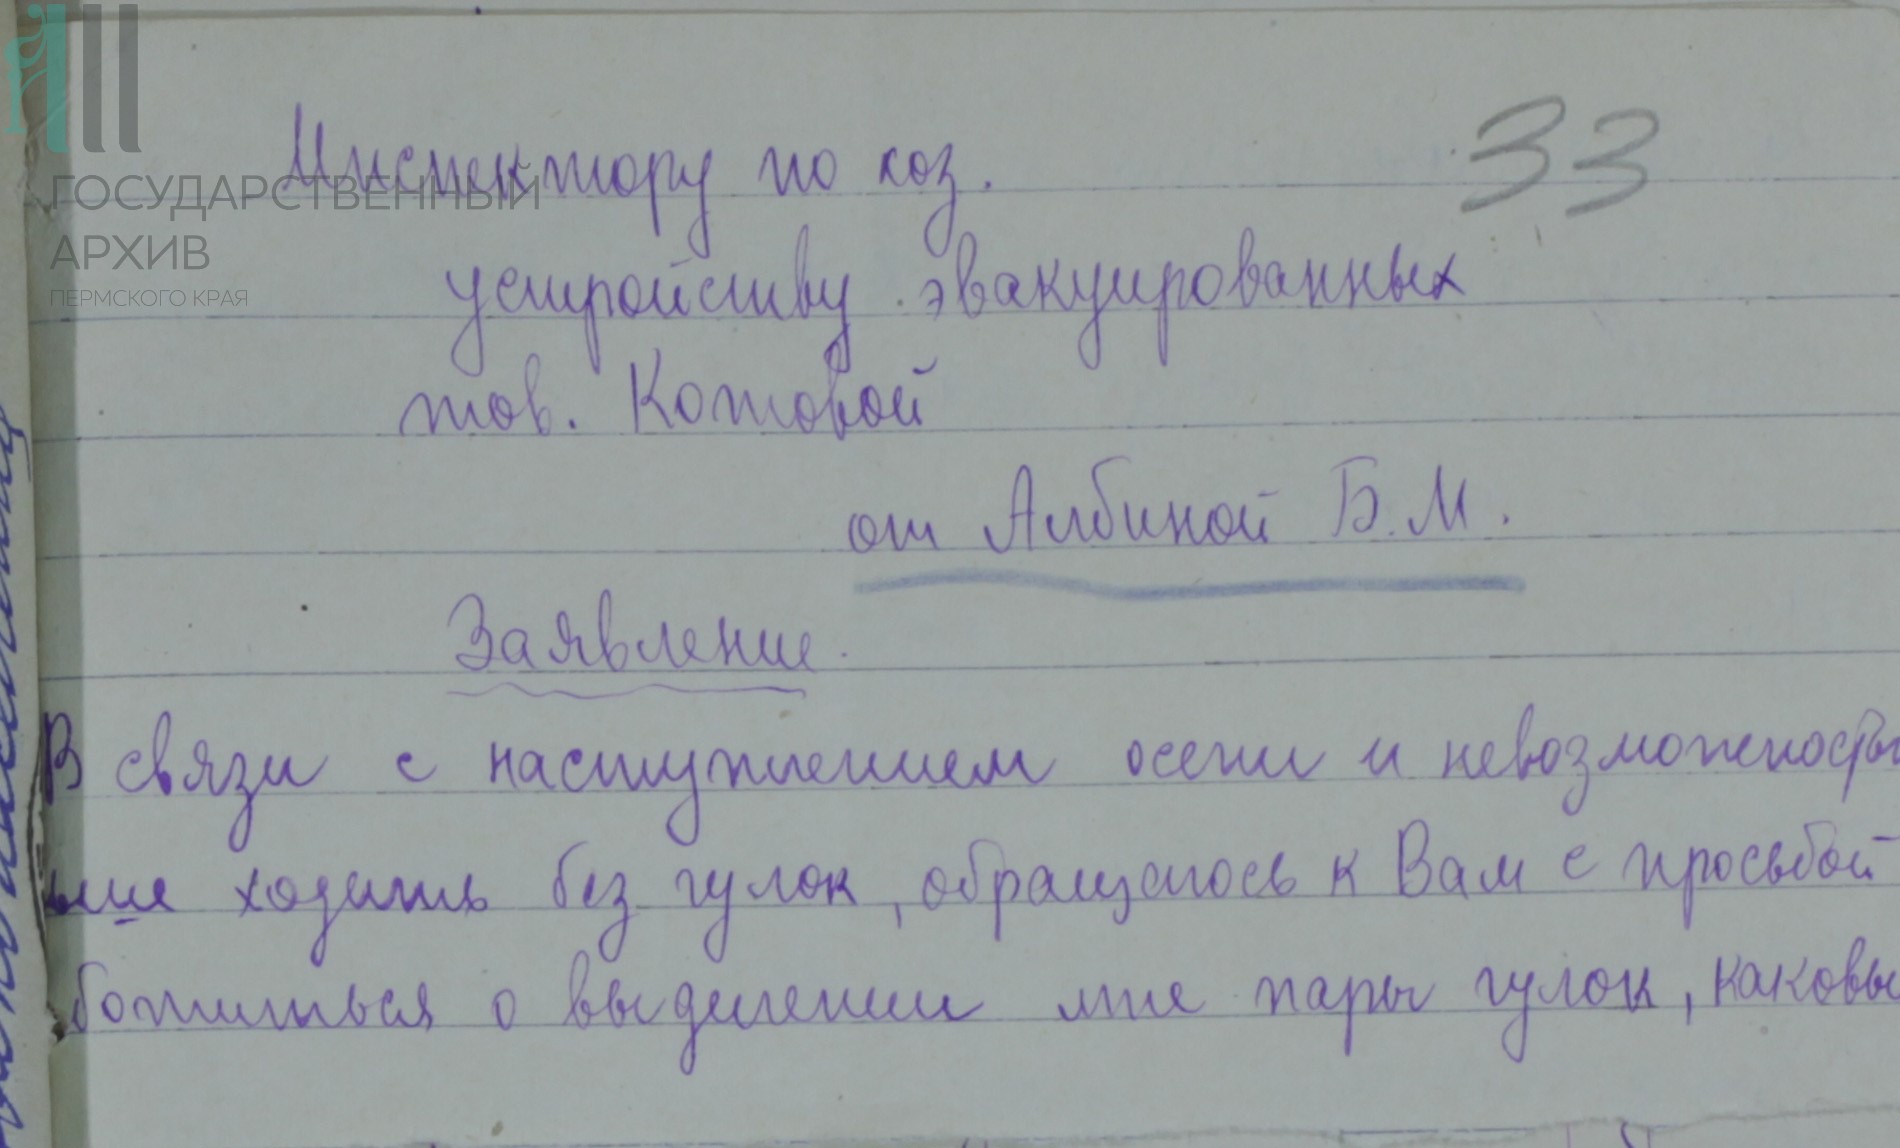 33
Инспектору по хоз.
ГОСУДАРСТВЕННЫЙ
АРХИВ
ПЕРМСКОГО КРАЯ
устройству эвакуированных
тов. Котовой
от Албиной Б.М.
Заявление.
В связи с наступлением осени и невозможность
ходить без гулок, обращаюсь к Вам с просьбой
ботиться о выделении мне пары гулок, каковы